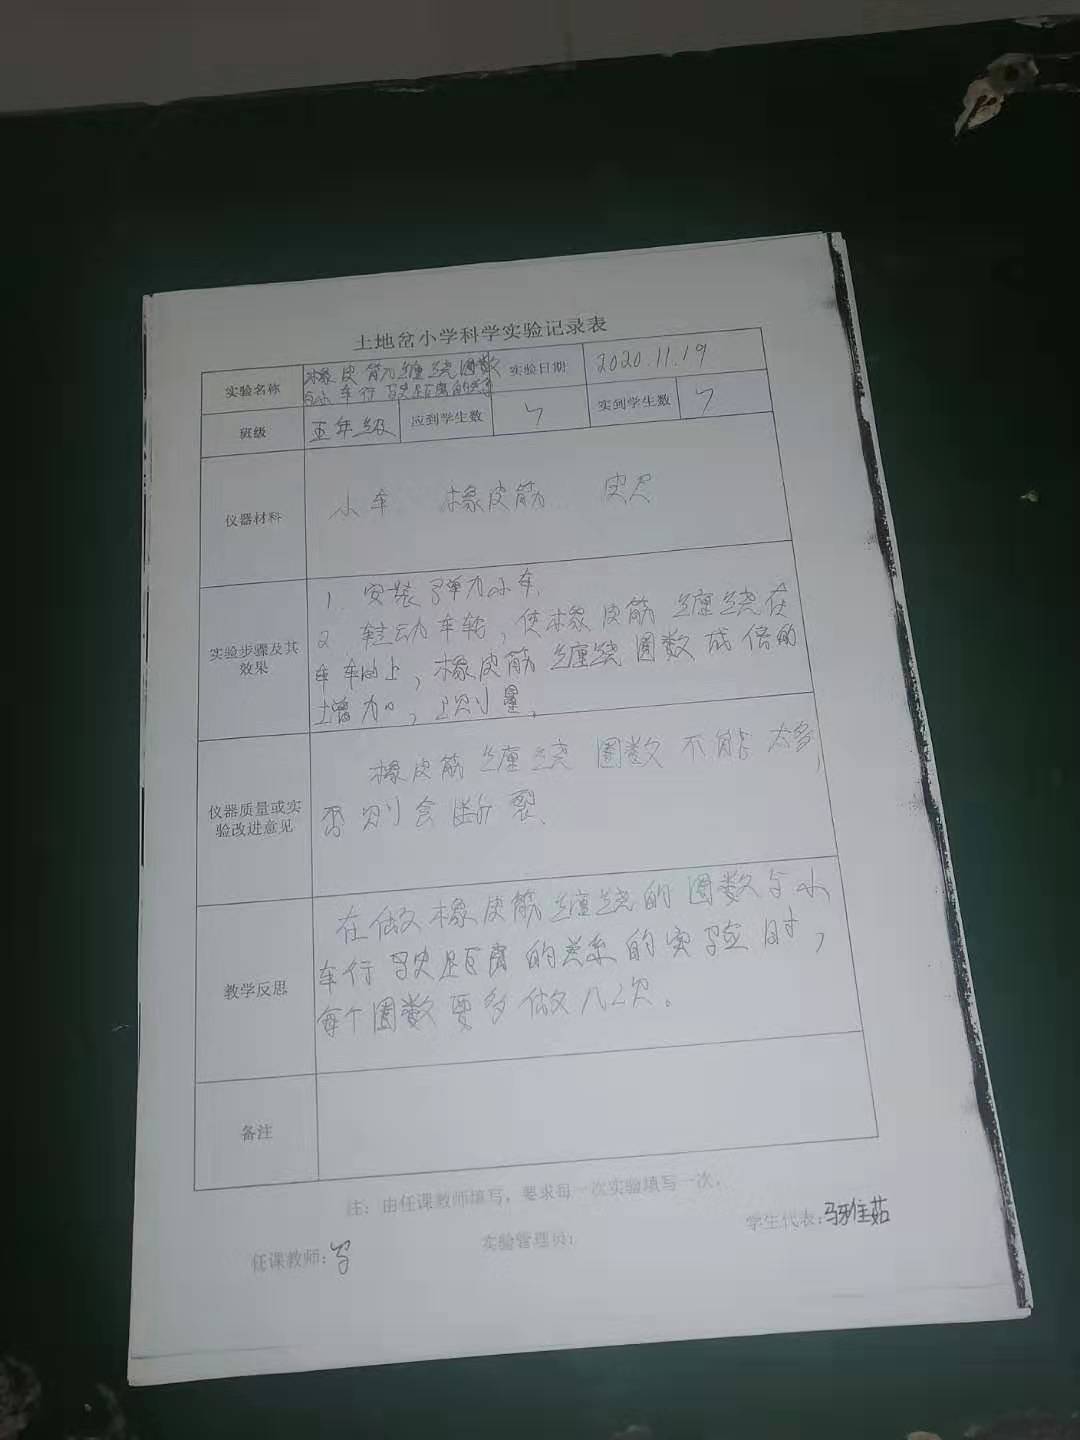 土地岔小学科学实验记录表
实验名称 橡皮筋缠绕圈数 实验日期 2020.11.19
与小车行驶距离的关系
班级 五年级 应到学生数 7 实到学生数 7
仪器材料 小车 橡皮筋 皮尺
1 安装弹力小车.
实验步骤及其 2 转动车轮,使橡皮筋缠绕在
效果 车轴上,橡皮筋缠绕圈数成倍的
增加,测量.
橡皮筋缠绕圈数不能太多,
仪器质量或实
验改进意见 否则会断裂.
在做橡皮筋缠绕的圈数与小
教学反思 车行驶距离的关系的实验时,
每个圈数要多做几次。
备注
注:由任课教师填写,要求每一次实验填写一次。
任课教师: 实验管理员: 学生代表:马雅茹